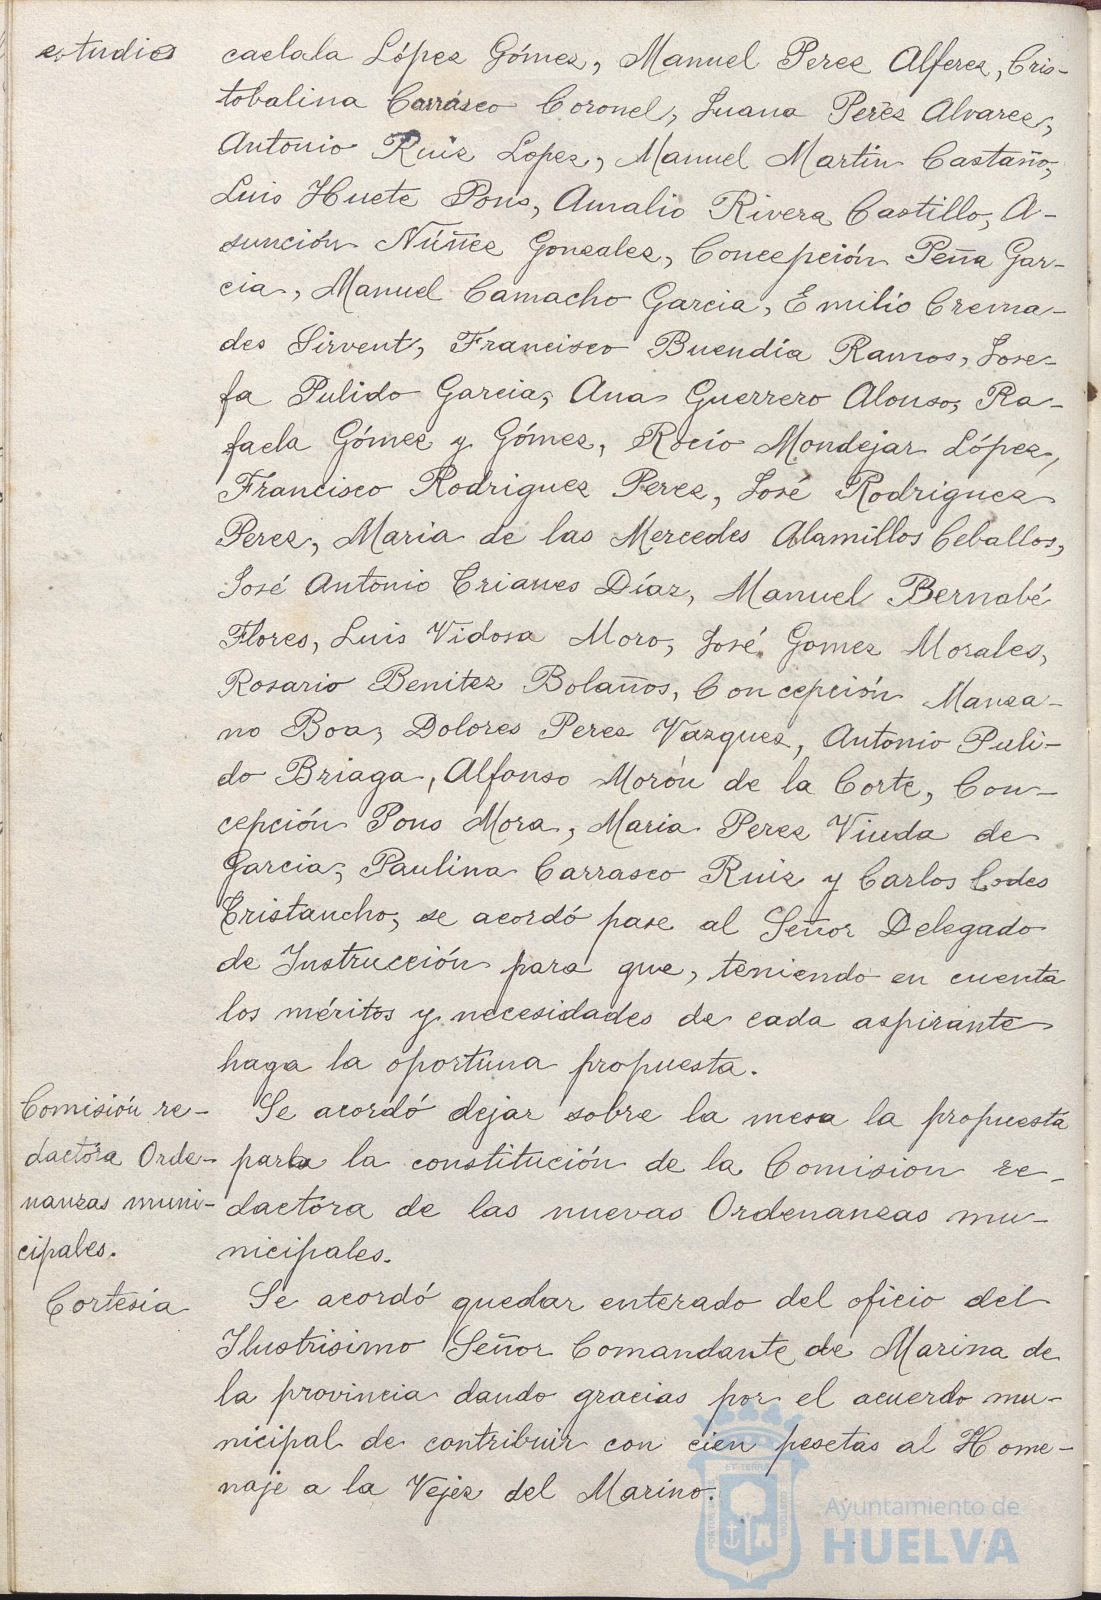 estudios
caelala López Gómez, Manuel Perez Alferez, Cris-
tobalina Carrasco Coronel, Juana Peréz Alvarez,
Antonio Ruiz Lopez, Manuel Martin Castaño,
Luis Huete Pons, Amalio Rivera Castillo, A-
sunción Núñez Gonzalez, Concepción Peña Gar-
cia, Manuel Camacho Garcia, Emilio Crema-
des Sirvent, Francisco Buendía Ramos, Jose-
fa Pulido Garcia, Ana Guerrero Alonso, Ra-
faela Gómez y Gómez, Rocío Mondejar López,
Francisco Rodriguez Perez, José Rodriguez
Perez, Maria de las Mercedes Alamillos Ceballos,
José Antonio Crianes Díaz, Manuel Bernabé
Flores, Luis Vidosa Moro, José Gomez Morales,
Rosario Benitez Bolaños, Concepción Manza-
no Boa, Dolores Perez Vazquez, Antonio Puli-
do Briaga, Alfonso Morón de la Corte, Con-
cepción Pons Mora, Maria Perez Viuda de
Garcia, Paulina Carrasco Ruiz y Carlos Codes
Cristancho, se acordó pase al Señor Delegado
de Instrucción para que, teniendo en cuenta
los méritos y necesidades de cada aspirante
haga la oportuna propuesta.
Comisión re-
dactora Orde-
nanzas muni-
cipales.
Se acordó dejar sobre la mesa la propuesta
para la constitución de la Comision re-
dactora de las nuevas Ordenanzas mu-
nicipales.
Cortesía
Se acordó quedar enterado del oficio del
Ilustrisimo Señor Comandante de Marina de
la provincia dando gracias por el acuerdo mu-
nicipal de contribuir con cien pesetas al Home-
naje a la Vejez del Marino.
Ayuntamiento de
HUELVA